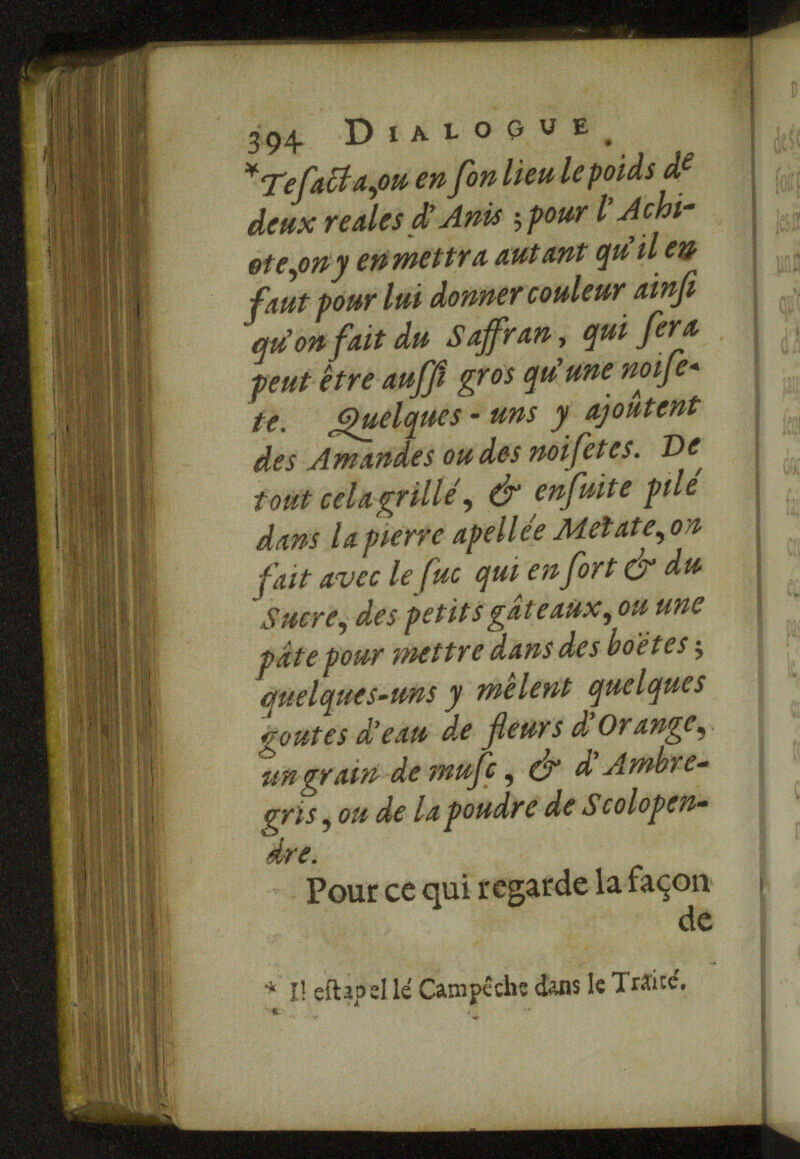 394 DIALOGUE.
*Tefacta,ou en ſon lieu le poids de
deux reales d'Anis ; pour l'Achi-
ote,on y en mettra autant qu'il en
faut pour lui donner couleur ainſi
qu'on fait du Saffran, qui ſera
peut être auſſi gros qu'une noiſe-
te. Quelques-uns y ajoûtent
des Amandes ou des noiſetes. De
tout cela grillé, & enſuite pilé
dans la pierre apellée Metate, on
fait avec le ſuc qui en ſort & du
Sucre, des petits gâteaux, ou une
pâte pour mettre dans des boëtes ;
quelques-uns y mêlent quelques
goutes d'eau de fleurs d'Orange,
un grain de muſc, & d'Ambre-
gris, ou de la poudre de Scolopen-
dre.
Pour ce qui regarde la façon
de
* Il eſt apellé Campêche dans le Traité.